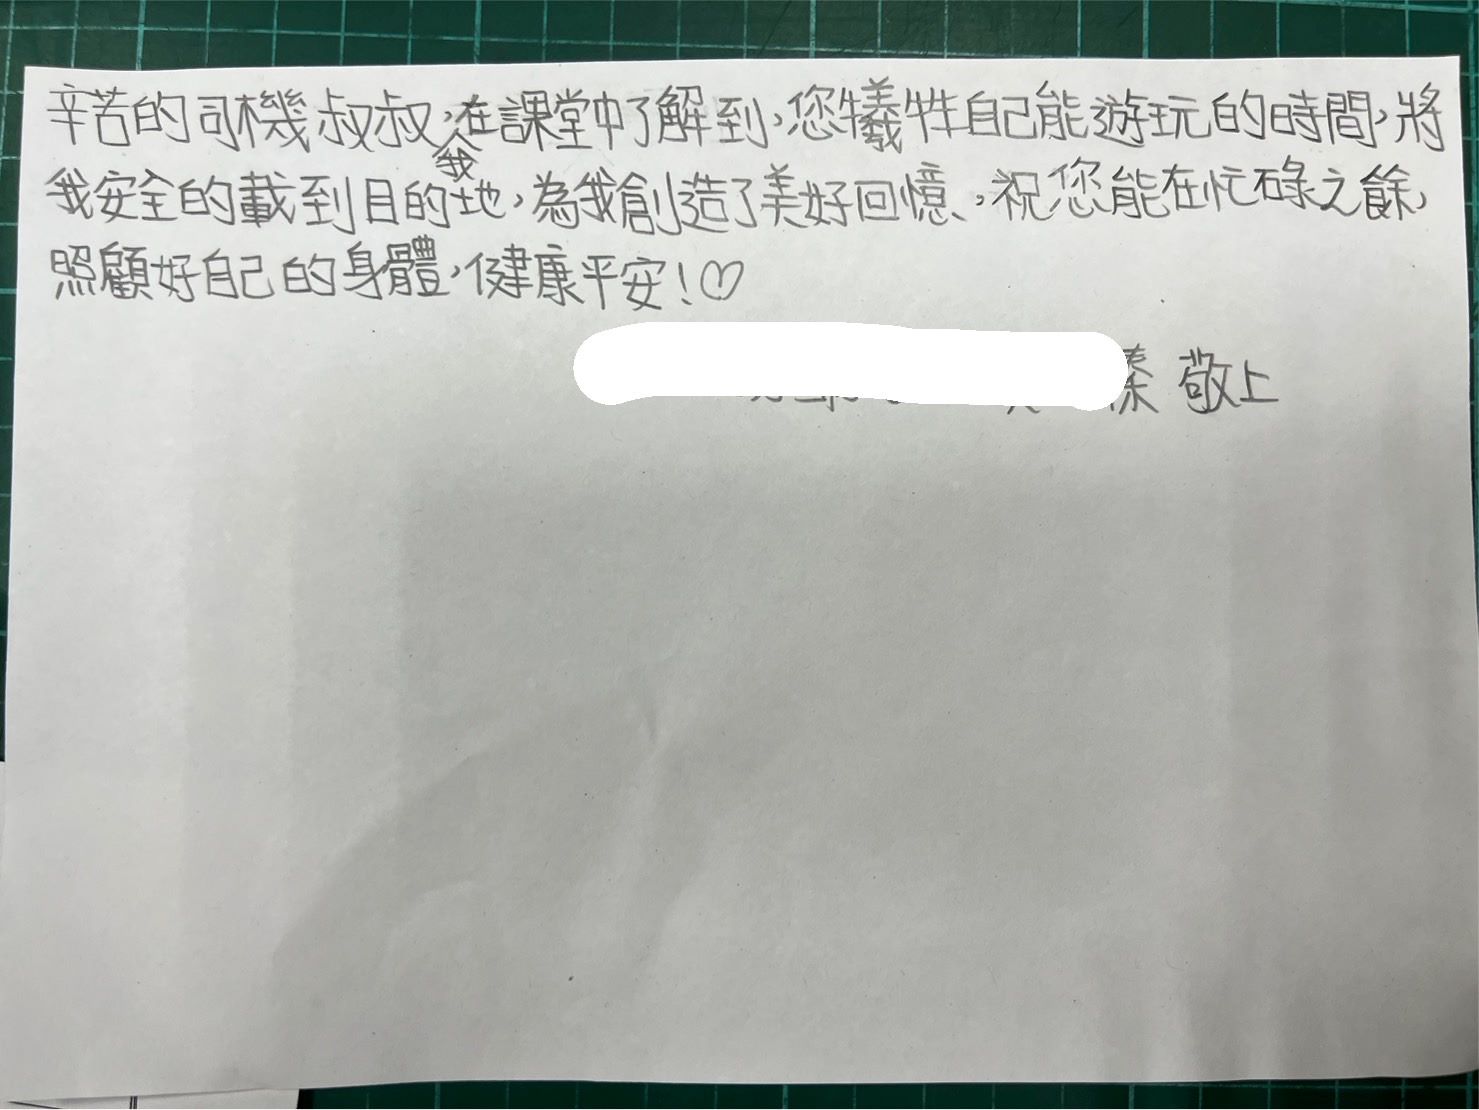 辛苦的司機叔叔，我在課堂中了解到，您犧牲自己能遊玩的時間，將
我安全的載到目的地，為我創造了美好回憶，祝您能在忙碌之餘，
照顧好自己的身體，健康平安！♡
敬上